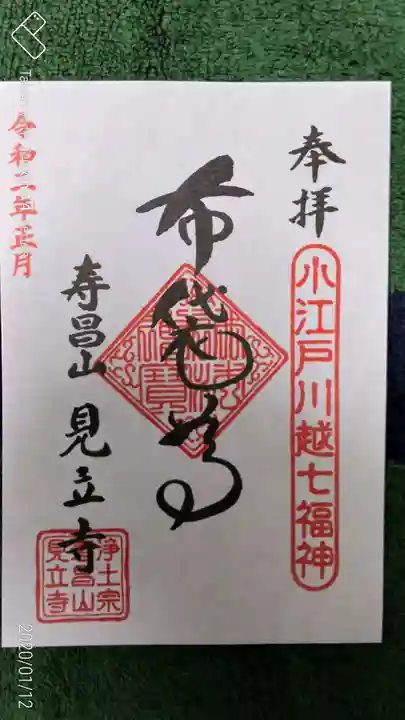 奉拝
小江戸川越七福神
布袋尊
寿昌山 見立寺
浄土宗
寿昌山
見立寺
令和二年正月
2020/01/12